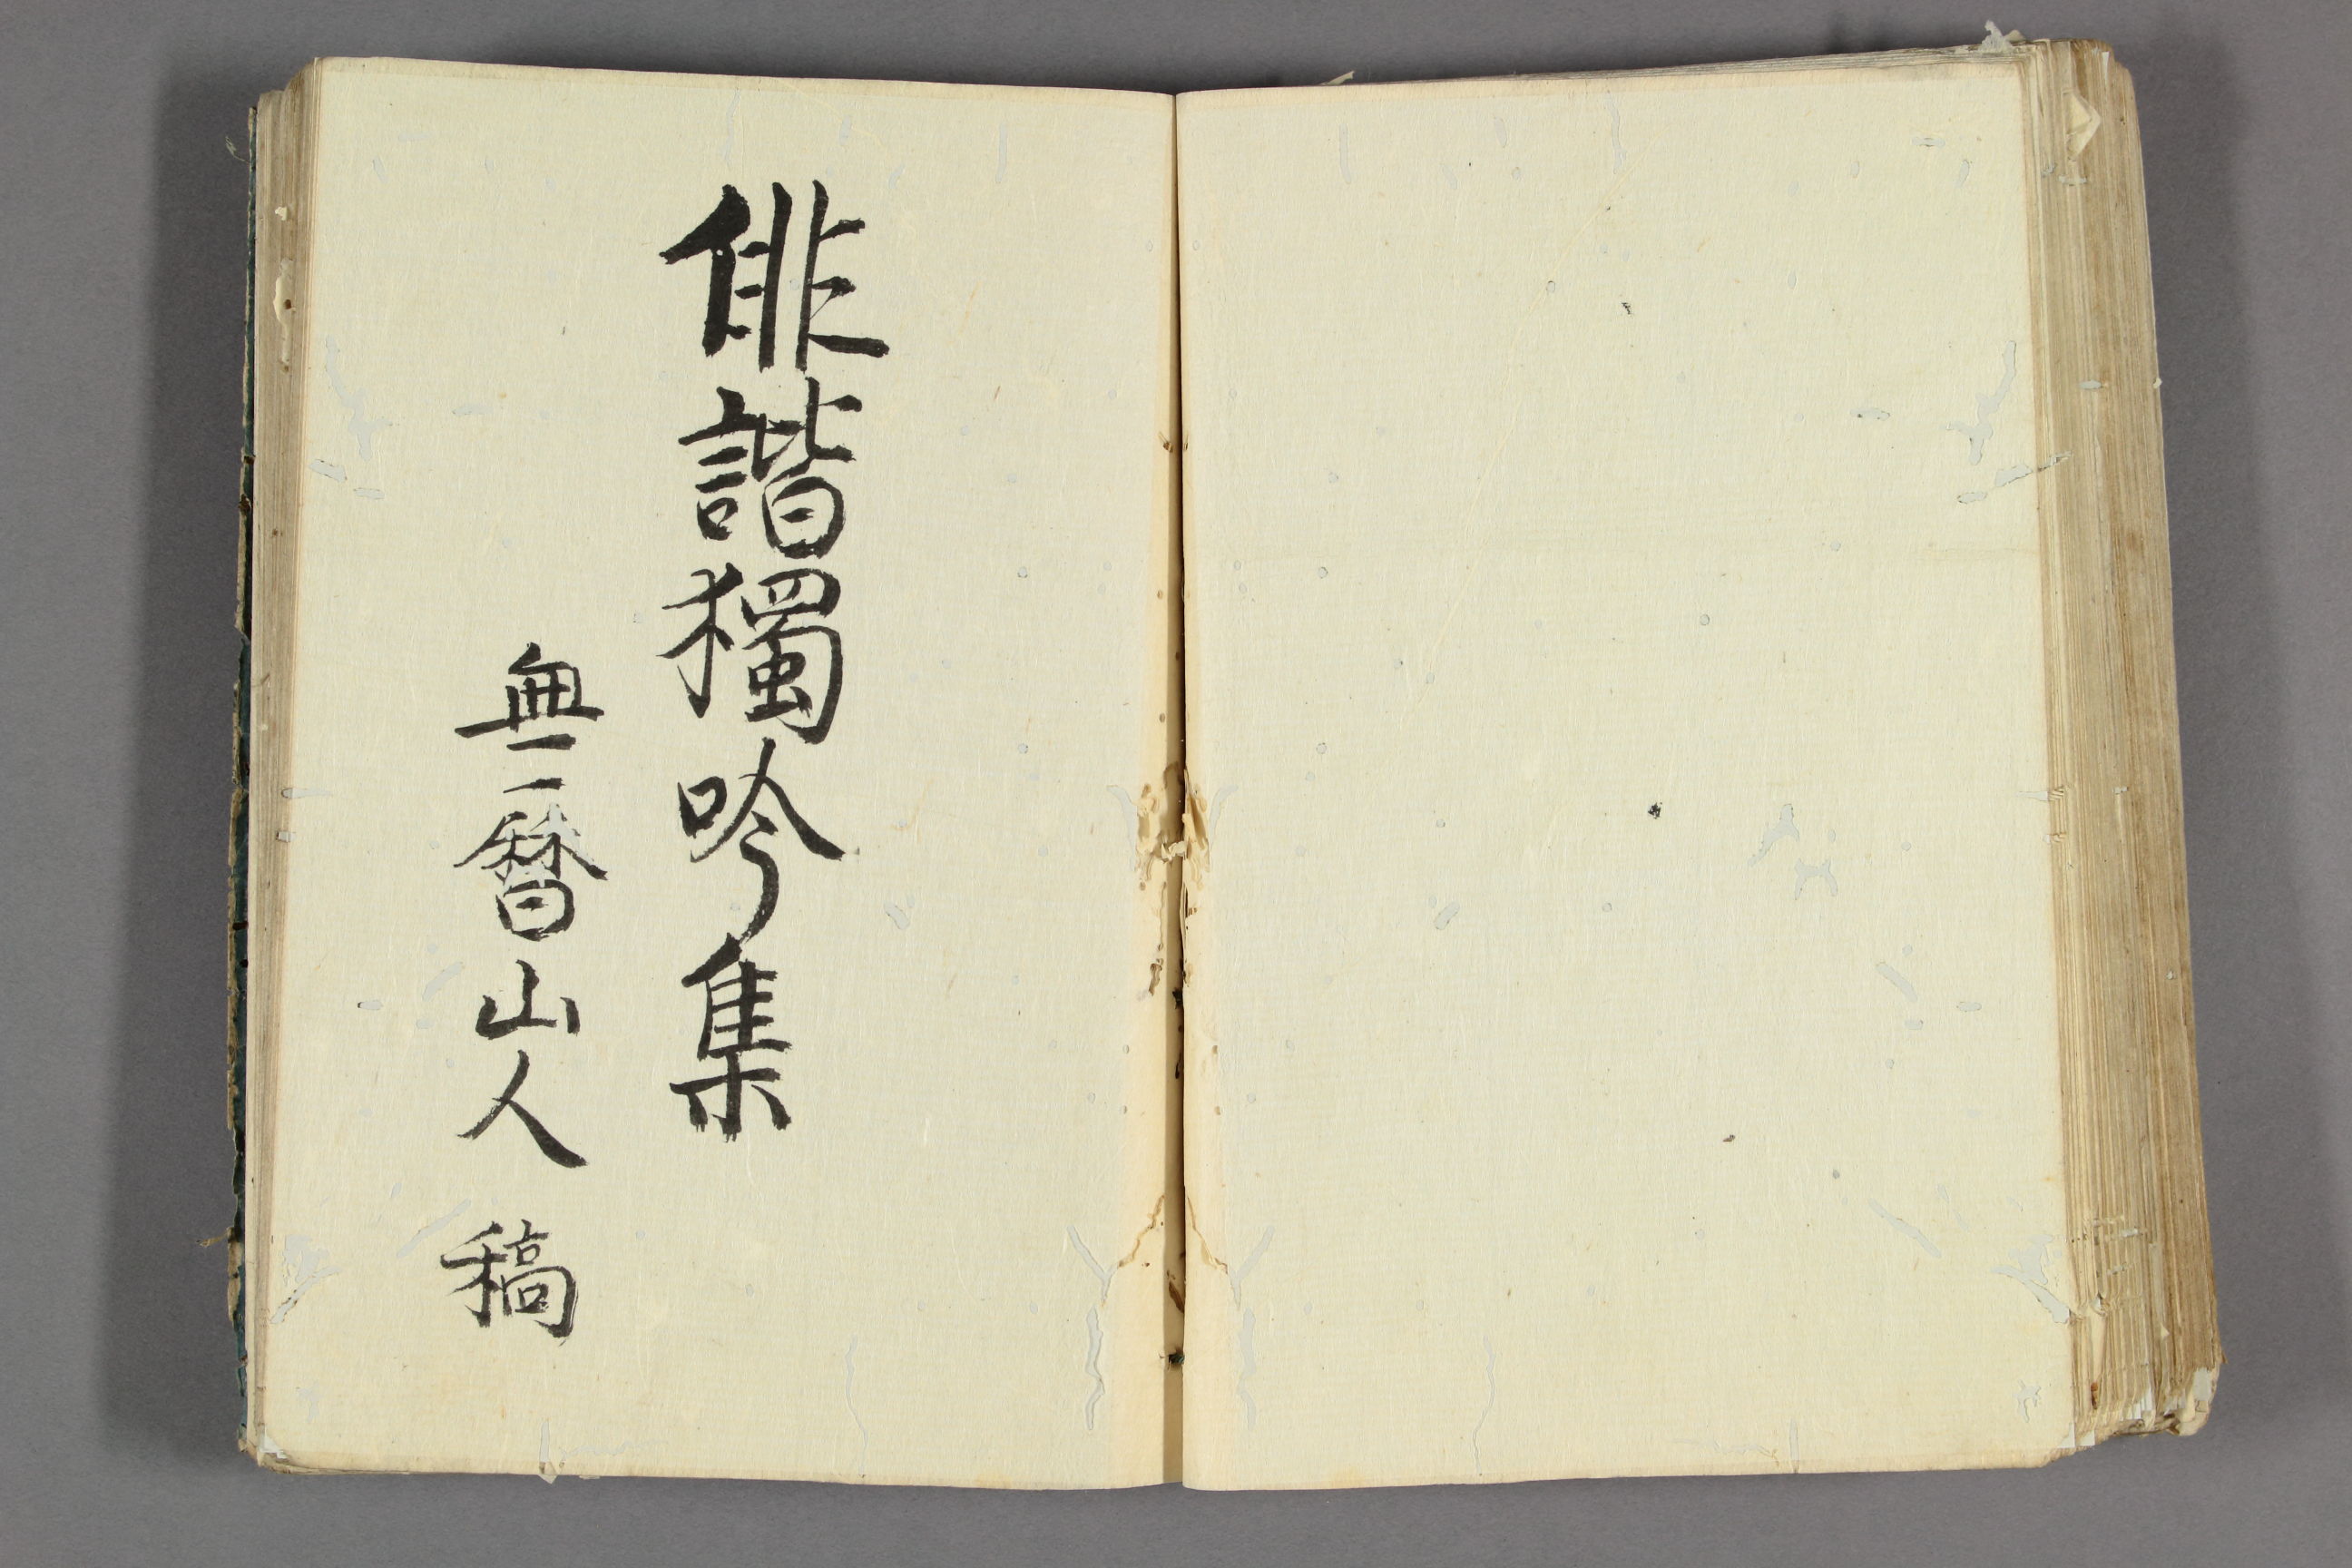 俳諧獨吟集
無暦山人 稿